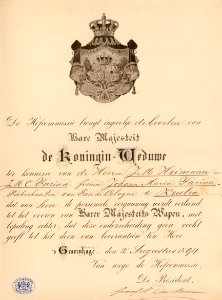 De Hofcommissie brengt ingevolge de bevelen van
Hare Majesteit
de Koningin-Weduwe
ter kennisse van de Heeren J. M. Heimann
J. M. C. Farina firma Johann Maria Farina
Fabrikanten van Eau de Cologne te Keulen
dat aan Hen de persoonlijke vergunning wordt verleend
tot het voeren van Harer Majesteits Wapen, met
bepaling echter, dat deze onderscheiding geen recht
geeft tot het doen van leverantien aan het Hof.
's Gravenhage, den 2 Augustus 1894
Van wege de Hofcommissie,
De President,